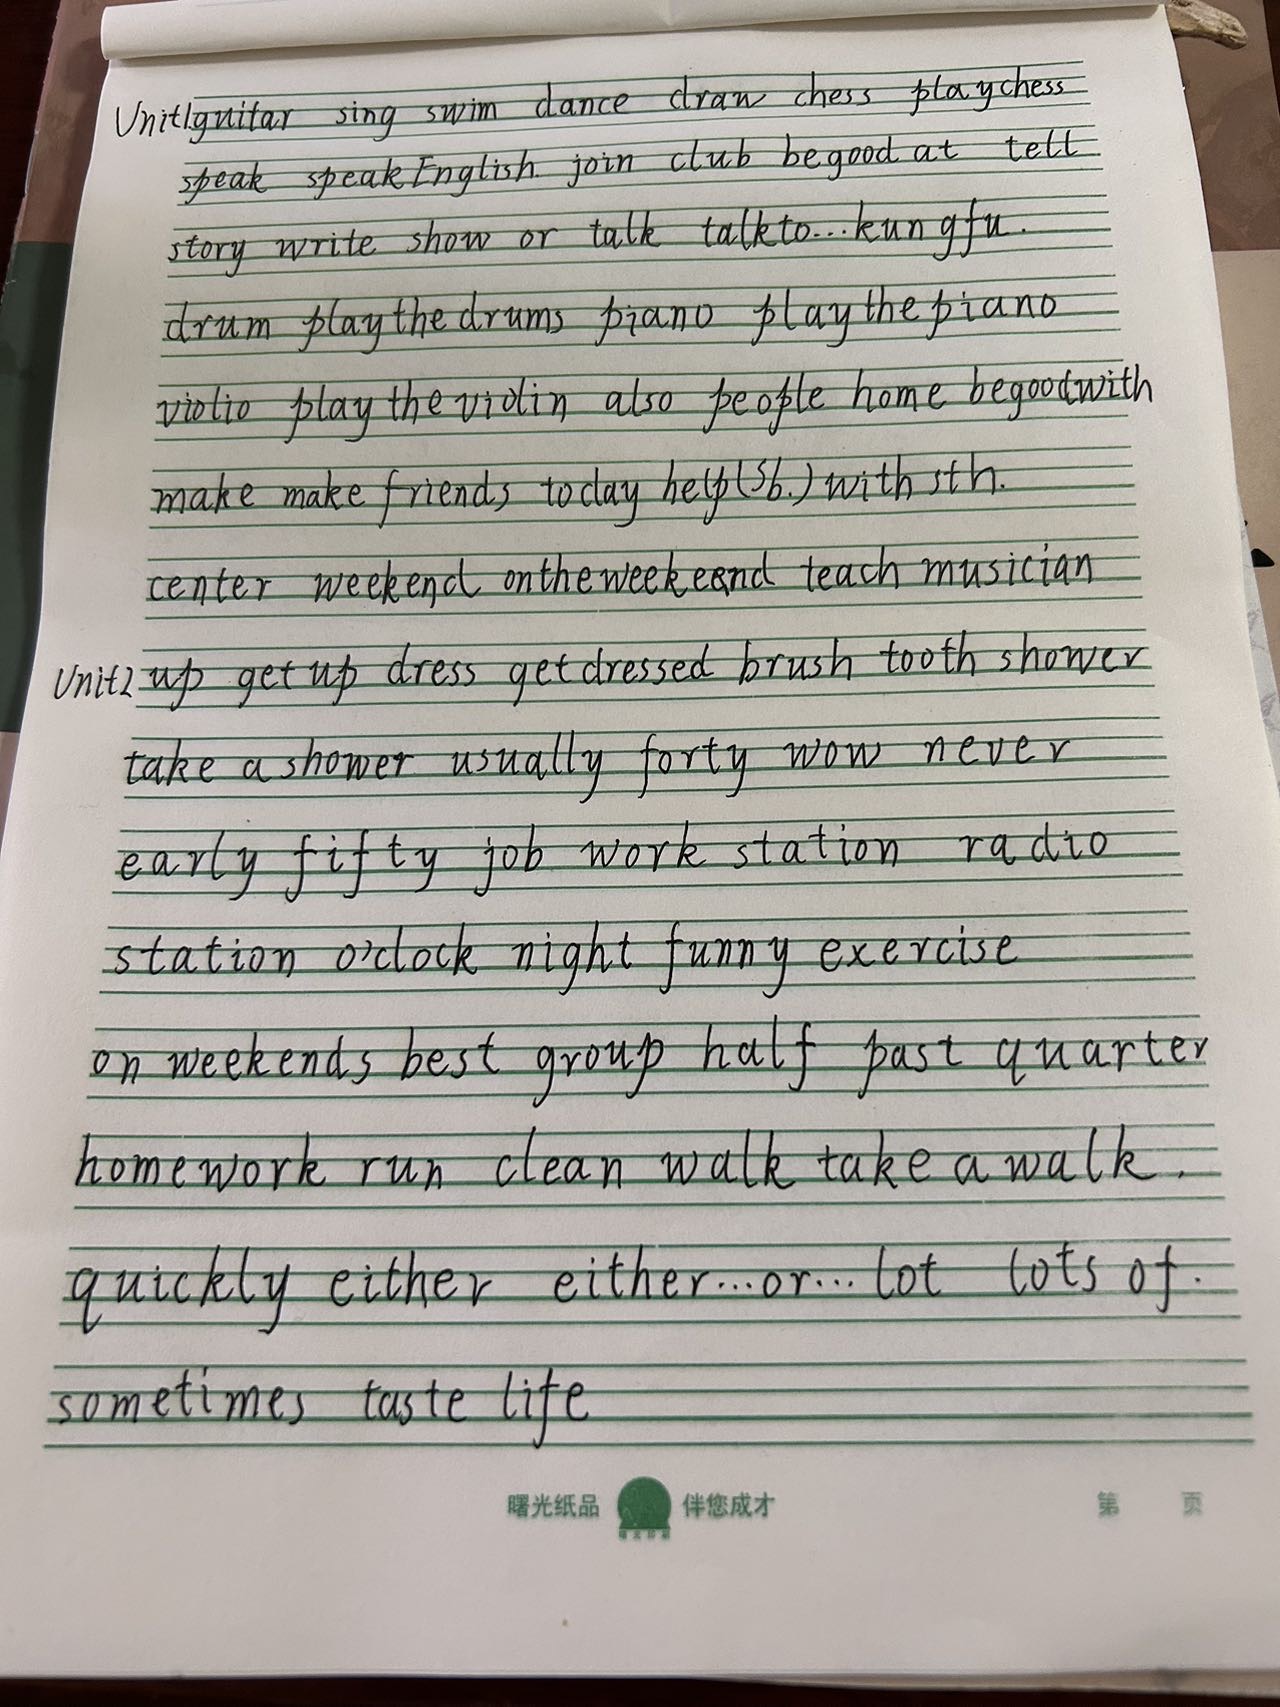 Unit1guitar sing swim dance draw chess playchess
speak speakEnglish. join club begood at tell
story write show or talk talkto...kungfu.
drum playthedrums piano playthepiano
violio play theviolin also people home begoodwith
make make friends today help(Sb.) with sth.
center weekend ontheweekeend teach musician
Unit2 up get up dress getdressed brush tooth shower
take a shower usually forty wow never
early fifty job work station radio
station o'clock night funny exercise
on weekends best group half past quarter
homework run clean walk take a walk.
quickly either either...or... lot lots of.
sometimes taste life
曙光纸品 伴您成才 第 页